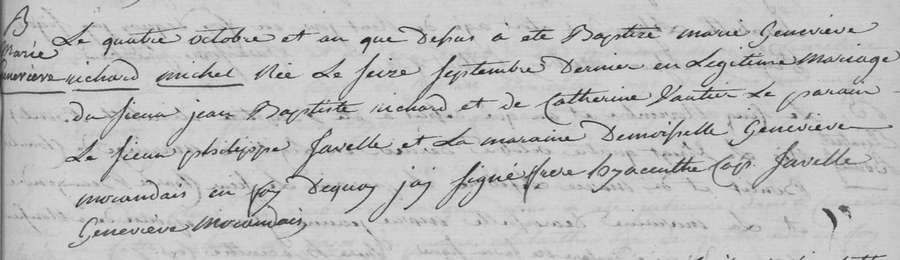 B
Marie
Genevieve
Le quatre octobre et an que Depus à eté Baptizé marie Genevieve
richard michel Née Le seize septembre Dernier en Legitime Mariage
du sieur jean Baptiste richard et de Catherine Vautier Le parain
Le sieur philippe Javelle et La maraine Demoiselle Genevieve
morandais en foy Dequoy jay signé frere hyacinthe Cap. Javelle
Genevieve Morandais